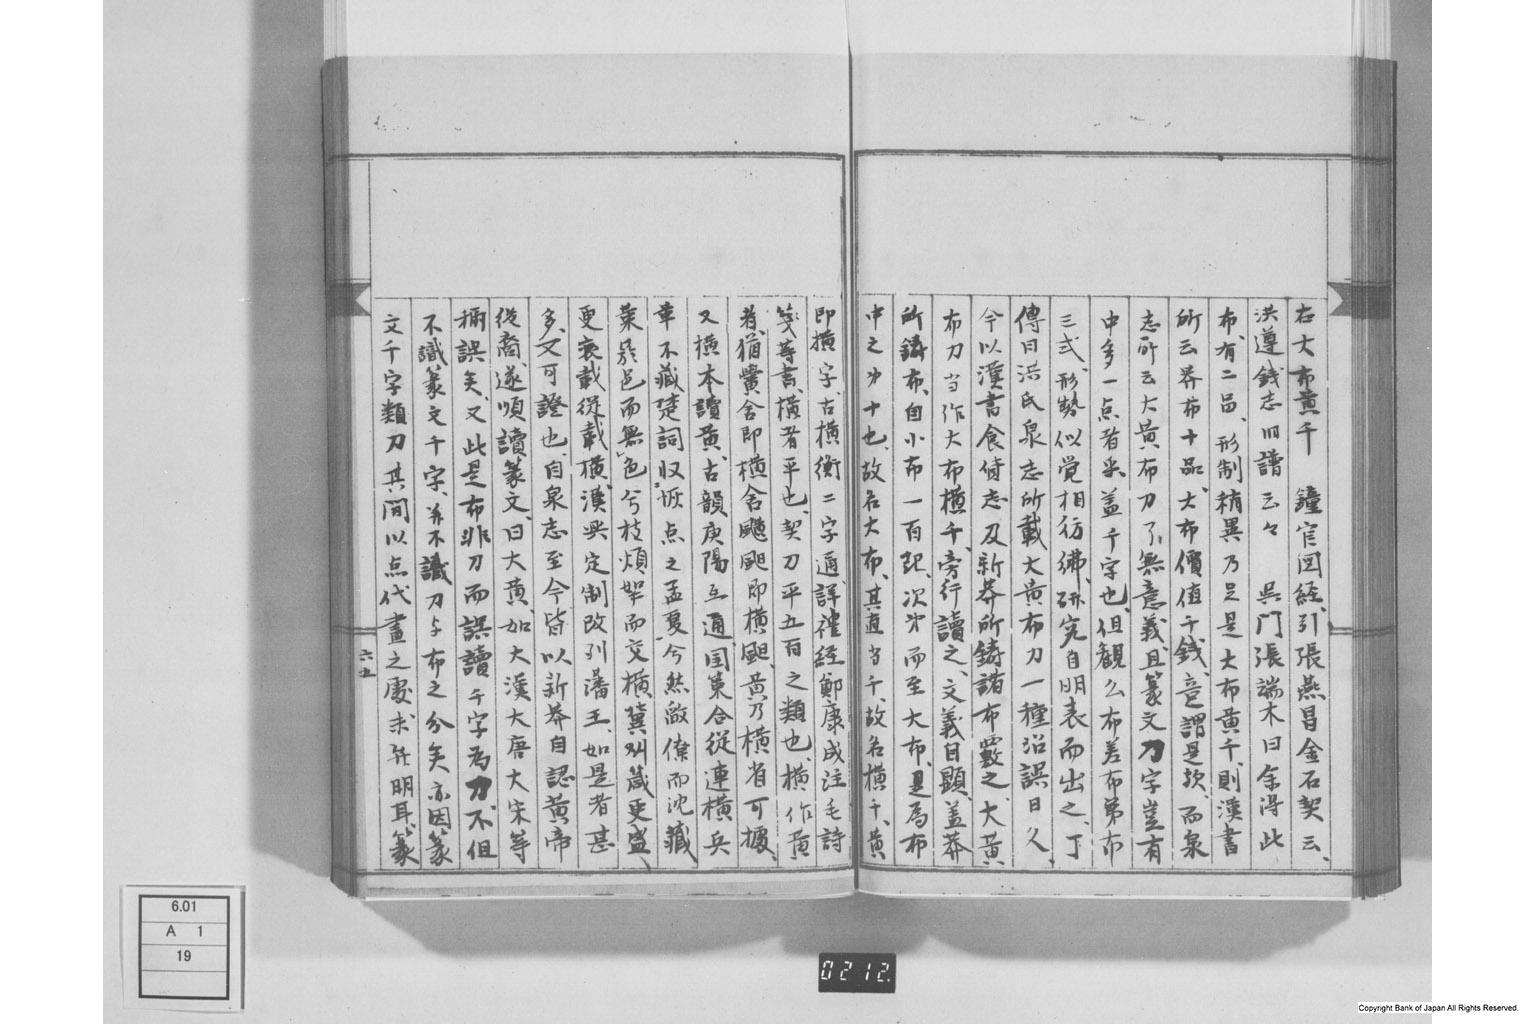 右大布黄千　鐘官図経、引張燕昌金石契云、
洪遵錢志旧譜云々　吳門張端木曰余得此
布、有二品、形制稍異乃足是大布黄千、則漢書
所云界布十品、大布價值千銭、意謂是歟、而泉
志所云大黄布刀了無意義、且篆文刀字豈有
中多一点者杲蓋千字也、但観么布差布第布
三式、形勢似覚相彷彿、研究自明表而出之、丁
傳曰洪氏泉志所載大黄布刀一種沿誤日久、
今以漢書食貨志及新莽所鋳諸布覈之、大黄
布刀当作大布横千、旁行讀之、文義自顕、蓋莽
所鋳布、自小布一百起、次第而至大布、是為布
中之第十也、故名大布、其直当千、故名横千、黄
即横字、古横衡二字通、詳礼経鄭康成注毛詩
箋等書、横者平也、契刀平五百之類也、横作黄
者、猶黌舍即横舍颺颺即横颺、黄乃横省可據、
又横本讀黄、古韻庚陽互通、国策合従連横兵
革不藏楚詞収恢点之孟夏、今然欿傺而沈藏
葉菸邑而無色兮枝煩挐而交横冀刕箴更盛、
更衰載従載横、漢興定制改列藩王、如是者甚
多、又可證也、自泉志至今皆以新莽自認黄帝
従裔、遂順讀篆文、曰大黄、如大漢大唐大宋等
稱誤矣、又此是布非刀而誤讀千字為刀、不但
不識篆文千字、并不識刀与布之分矣、亦因篆
文千字類刀其間以点代畫之處未能明耳、篆
六五
6.01
A 1
19
0212.
Copyright Bank of Japan All Rights Reserved.